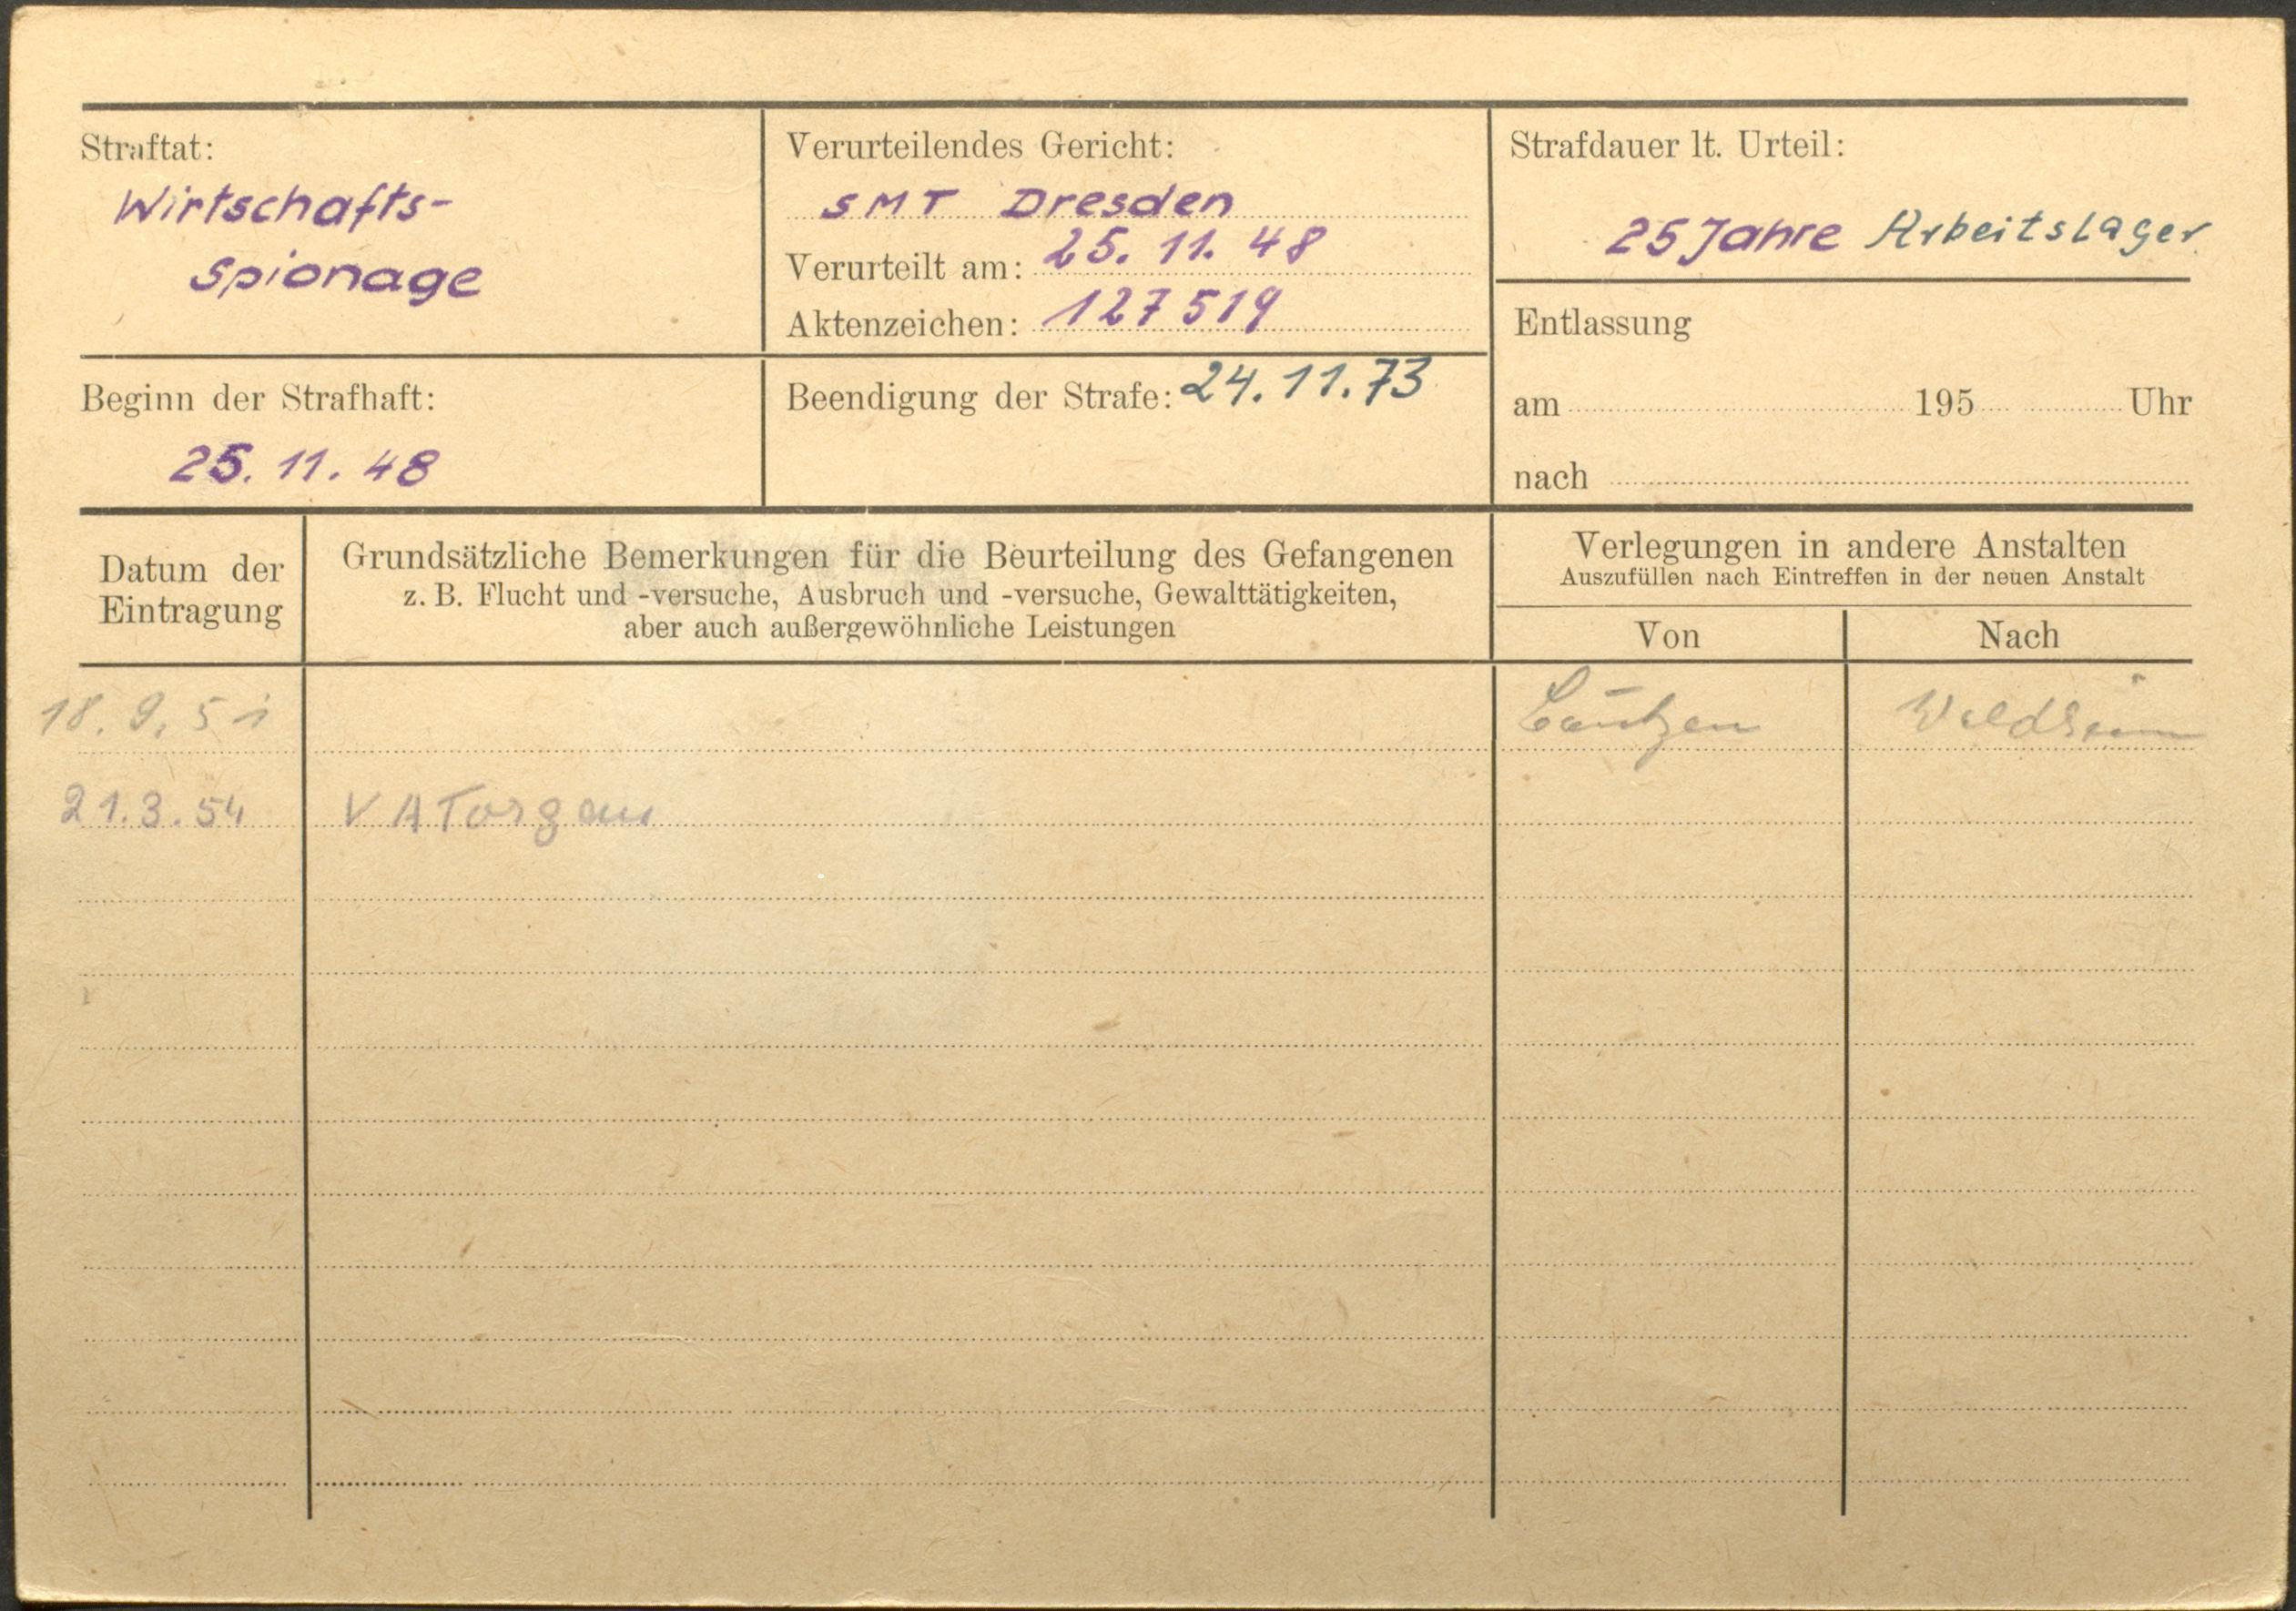 Straftat:
Wirtschafts-
Spionage
Verurteilendes Gericht:
SMT Dresden
Verurteilt am: 25. 11. 48
Aktenzeichen: 127519
Strafdauer lt. Urteil:
25 Jahre Arbeitslager
Entlassung
am 195 Uhr
nach
Beginn der Strafhaft:
25. 11. 48
Beendigung der Strafe: 24. 11. 73
Datum der
Eintragung
Grundsätzliche Bemerkungen für die Beurteilung des Gefangenen
z. B. Flucht und -versuche, Ausbruch und -versuche, Gewalttätigkeiten,
aber auch außergewöhnliche Leistungen
Verlegungen in andere Anstalten
Auszufüllen nach Eintreffen in der neuen Anstalt
Von Nach
18. 9. 51 Bautzen Waldheim
21. 3. 54 VA Torgau